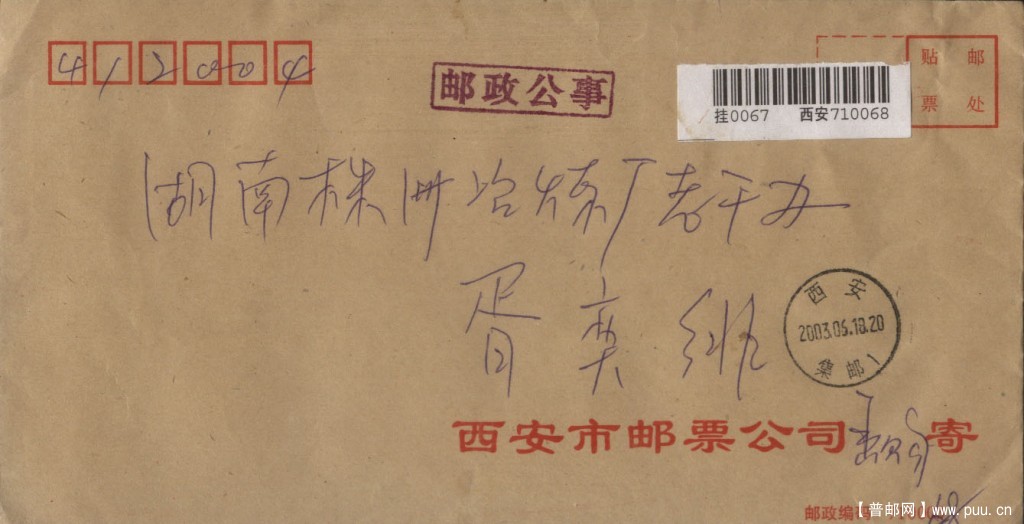 412004
邮政公事
贴 邮
票 处
挂0067 西安710068
湖南株洲冶炼厂老干办
胥奕
西安
2003.05.18.20
集邮1
西安市邮票公司 寄
邮政编码
【普邮网】www.puu.cn